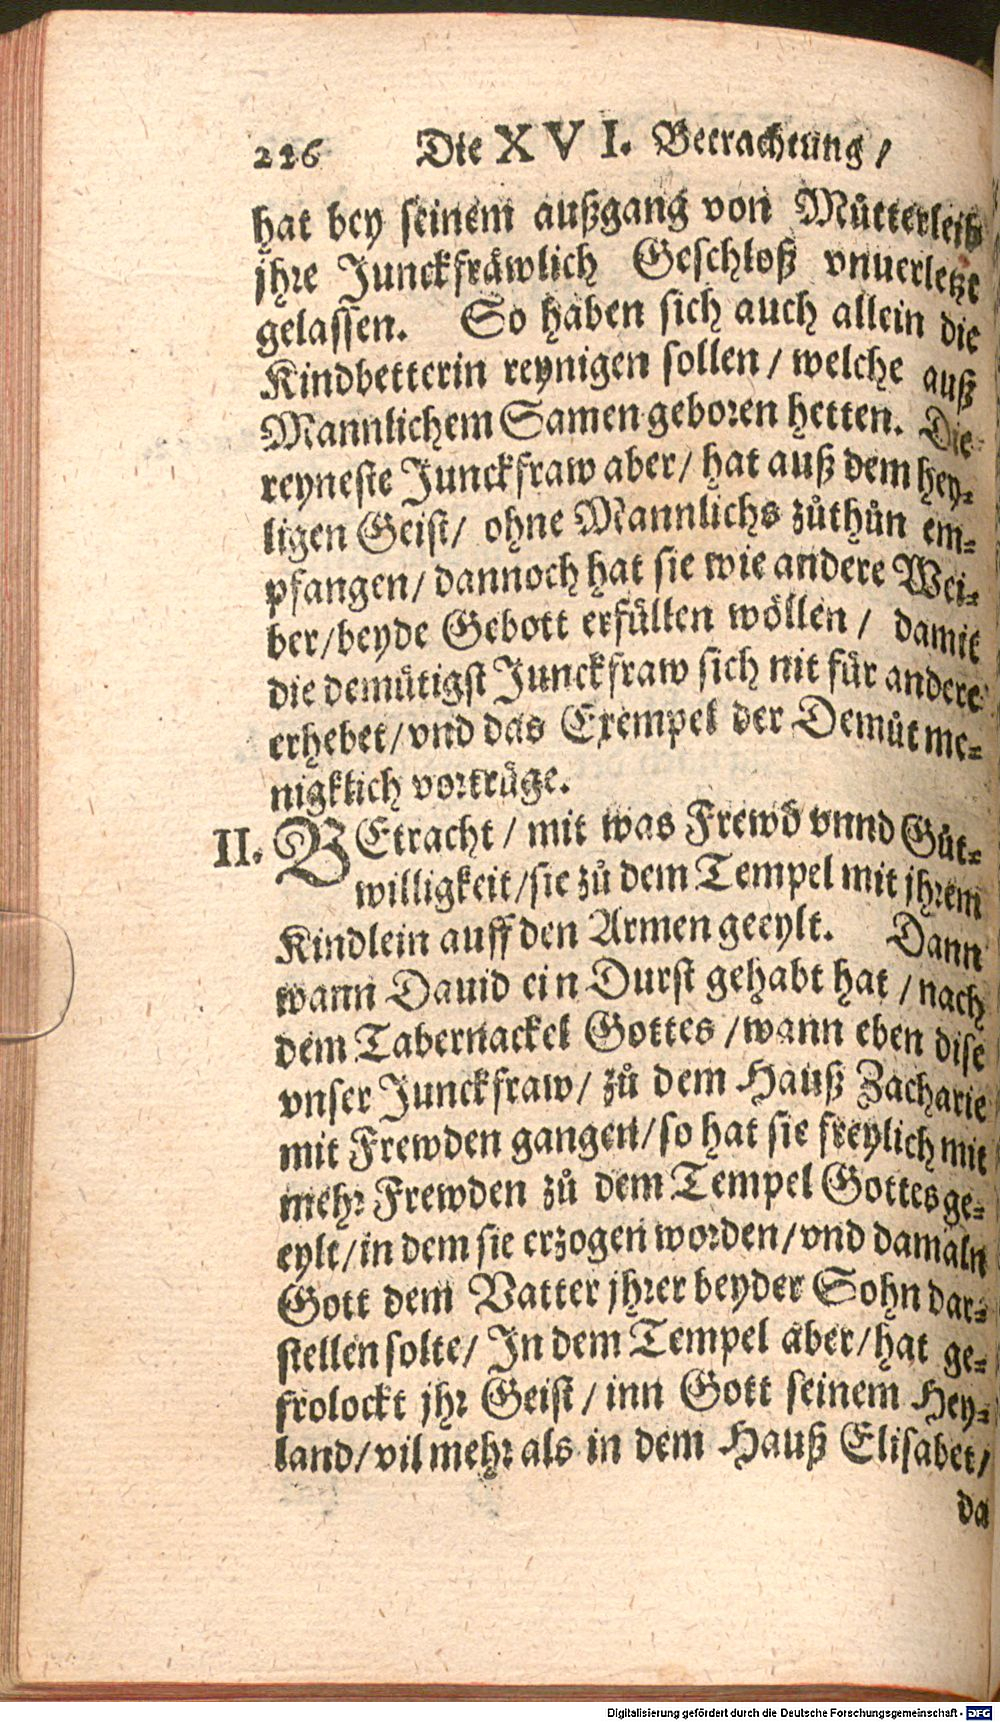 226 Die XVI. Betrachtung /
hat bey seinem außgang von Můtterleib
jhre Junckfräwlich Geschloß vnuerletzt
gelassen. So haben sich auch allein die
Kindbetterin reynigen sollen / welche auß
Mannlichem Samen geboren hetten. Die
reyneste Junckfraw aber / hat auß dem hey-
ligen Geist / ohne Mannlichs zůthůn em-
pfangen / dannoch hat sie wie andere Wei-
ber / beyde Gebott erfüllen wöllen / damit
die demütigst Junckfraw sich nit für andere
erhebet / vnd das Exempel der Demůt me-
nigklich vortrüge.
II. BEtracht / mit was Frewd vnnd Gůt-
willigkeit / sie zů dem Tempel mit jhrem
Kindlein auff den Armen geeylt. Dann
wann Dauid ein Durst gehabt hat / nach
dem Tabernackel Gottes / wann eben dise
vnser Junckfraw / zů dem Hauß Zacharie
mit Frewden gangen / so hat sie freylich mit
mehr Frewden zů dem Tempel Gottes ge-
eylt / in dem sie erzogen worden / vnd damaln
Gott dem Vatter jhrer beyder Sohn dar-
stellen solte / In dem Tempel aber / hat ge-
frolockt jhr Geist / inn Gott seinem Hey-
land / vil mehr als in dem Hauß Elisabet /
da
Digitalisierung gefördert durch die Deutsche Forschungsgemeinschaft - DFG